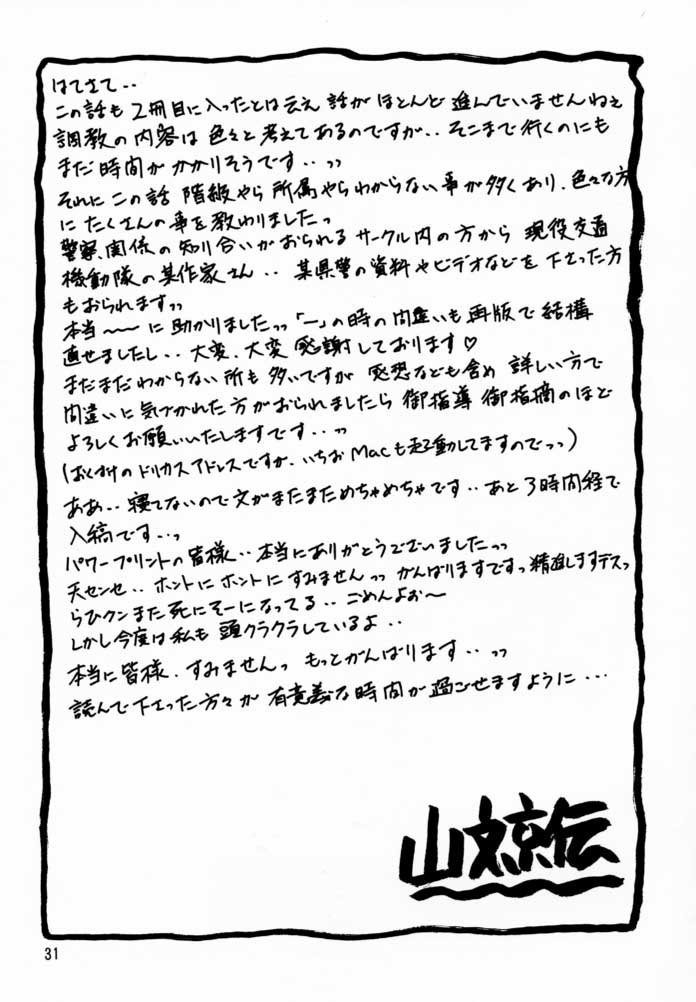 はてさて‥
この話も 2冊目に入ったとは云え 話が ほとんど 進んでいませんねぇ
調教の内容は 色々と考えてあるのですが‥そこまで行くのにも
まだ時間が かかりそうです‥っっ
それに この話 階級やら 所属やらわからない事が多くあり、色々な方
に たくさんの事を教わりましたっ
警察関係の知り合いがおられる サークル内の方から 現役交通
機動隊の某作家さん‥ 某県警の資料やビデオなどを 下さった方
もおられますっっ
本当〜〜に 助かりましたっっ「一」の時の間違いも 再版で 結構
直せましたし‥大変、大変 感謝しております♡
まだまだわからない所も 多いですが 感想なども含め 詳しい方で
間違いに気づかれた方がおられましたら 御指導 御指摘のほど
よろしくお願いいたしますです‥っっ
(おくづけのドリカスアドレスですが、いちお Macも起動してますのでっっ)
ああ‥寝てないので文がまたまためちゃめちゃです‥あと3時間経で
入稿です‥っ
パワープリントの皆様‥本当にありがとうございましたっっ
天センセ‥ホントに ホントに すみませんっっ がんばりますですっ精進しますデスっ
らひクンまた死にそーになってる‥ごめんよぉ〜
しかし今度は私も 頭クラクラしているよ‥
本当に皆様、すみませんっ もっとがんばります‥っっ
読んで下さった方々が 有意義な時間が過ごせますように…
山文京伝
31